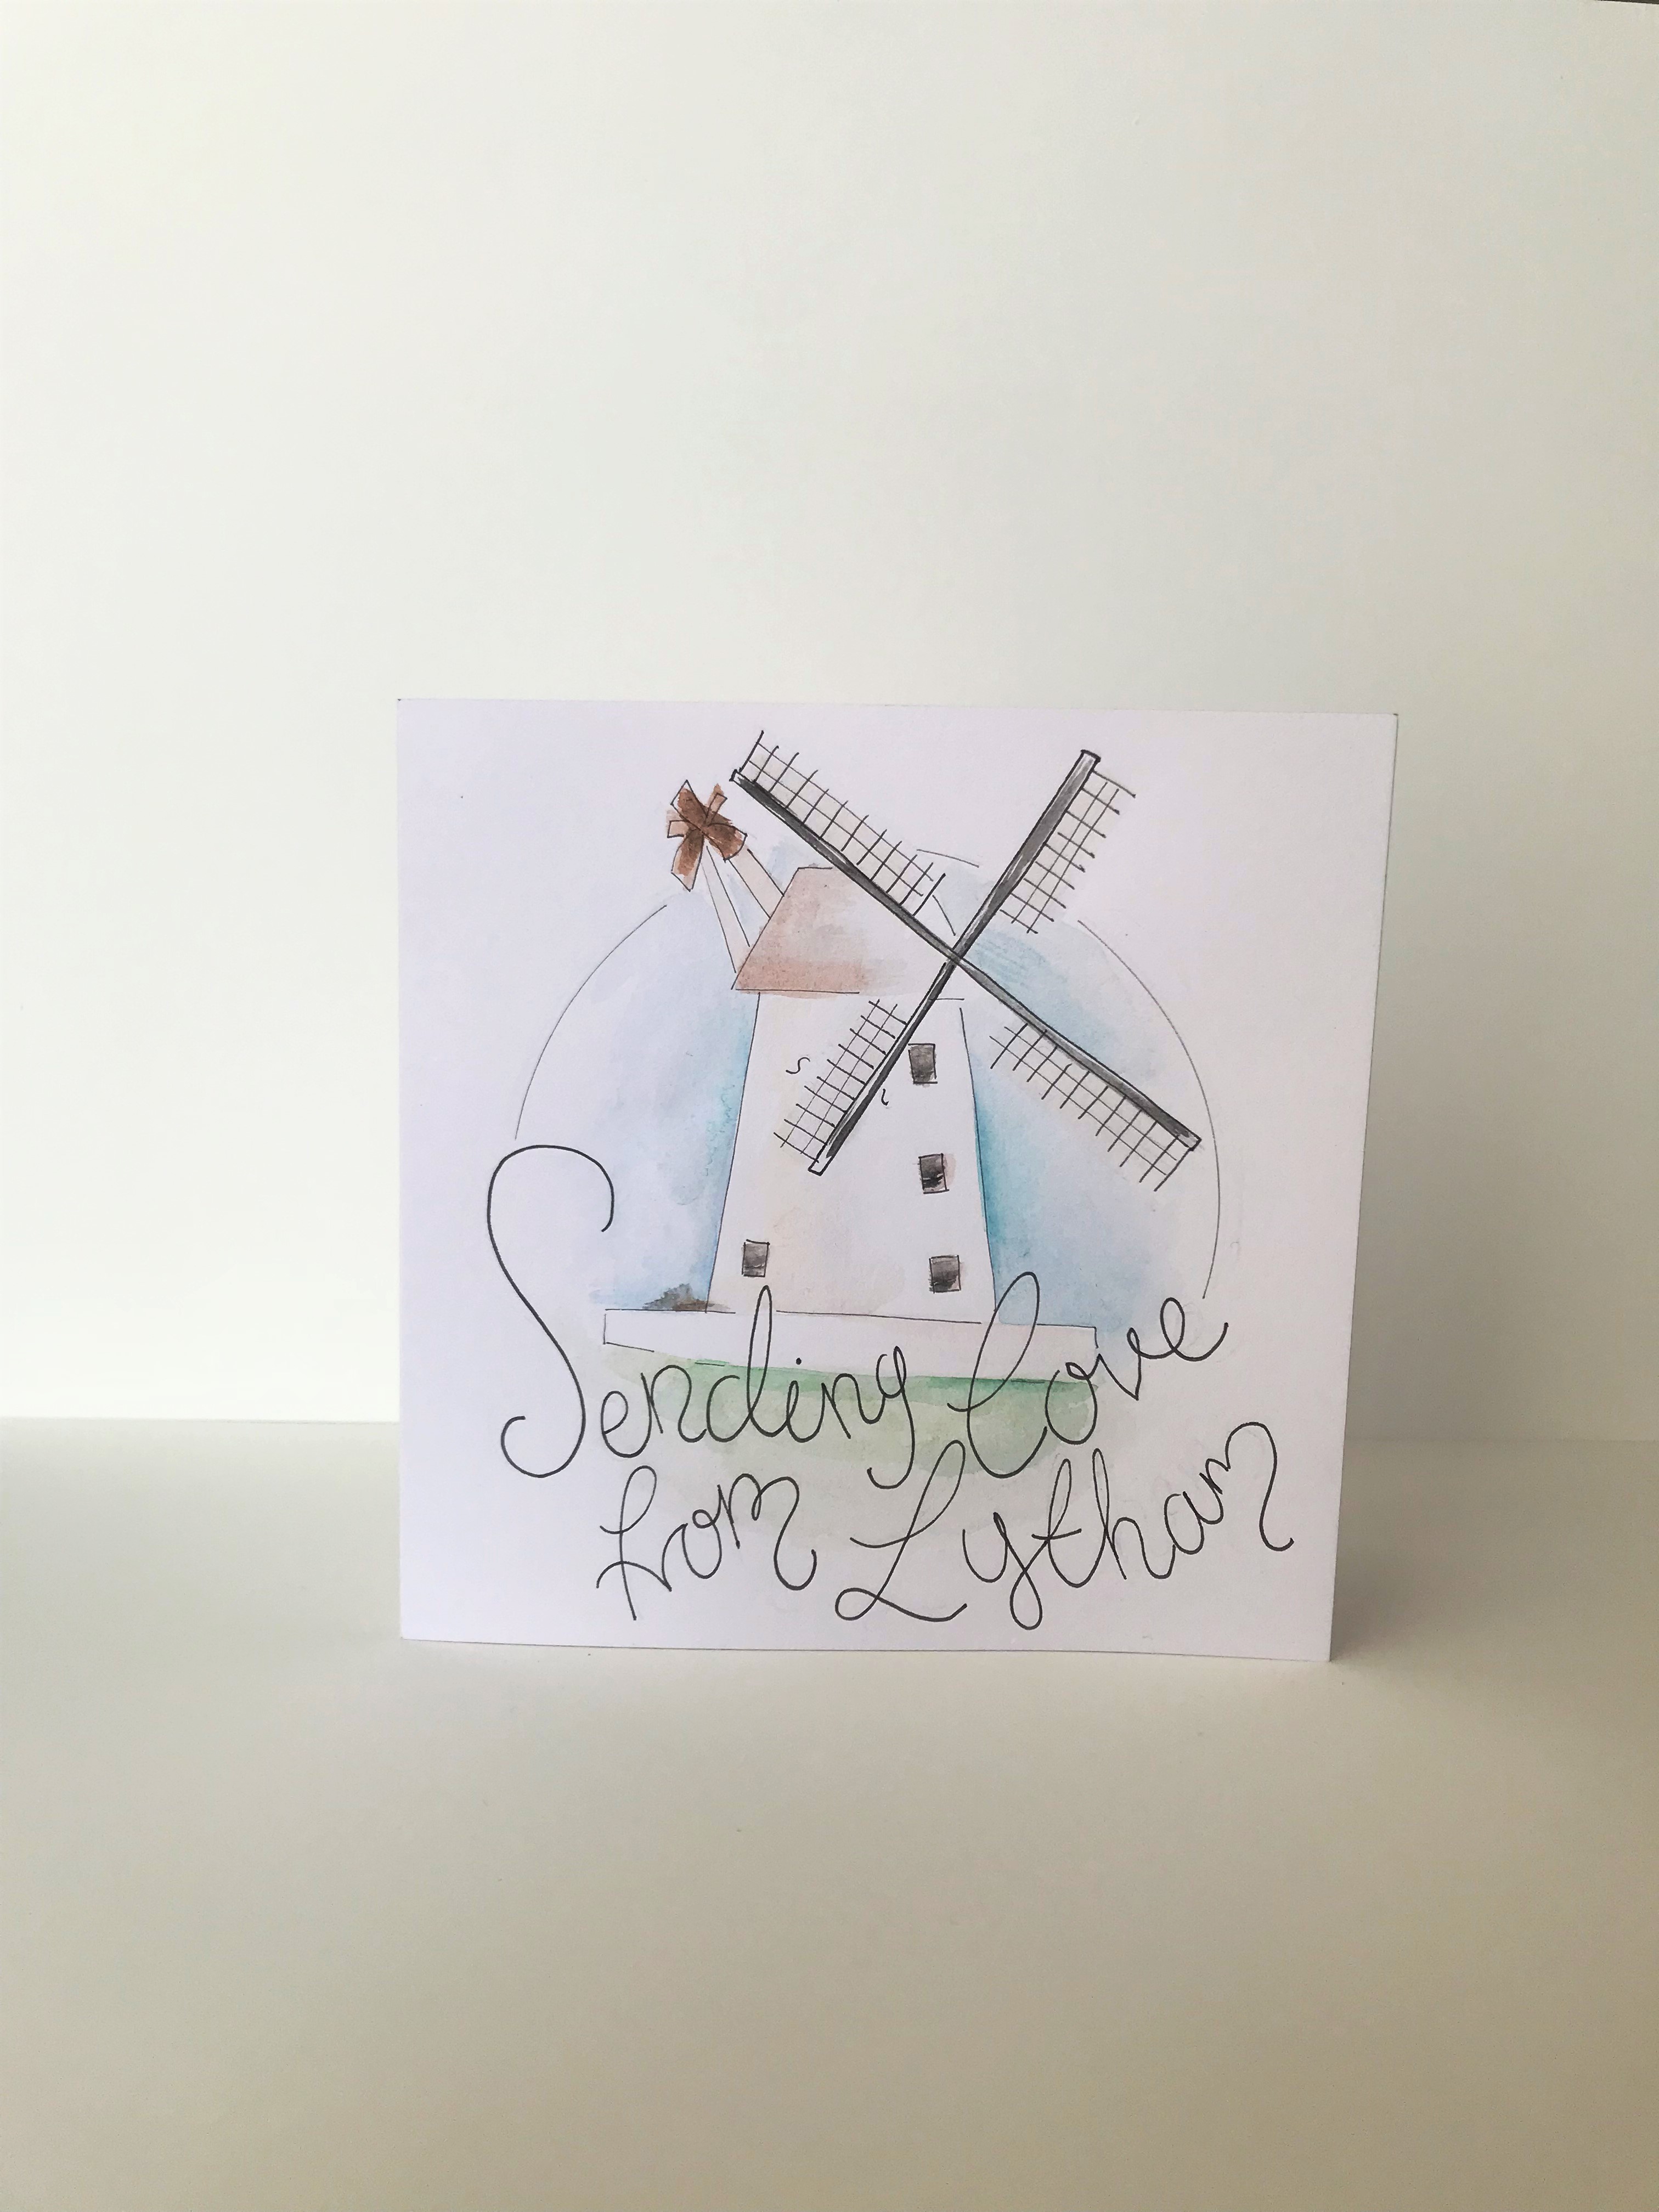 Sending love
from Lytham